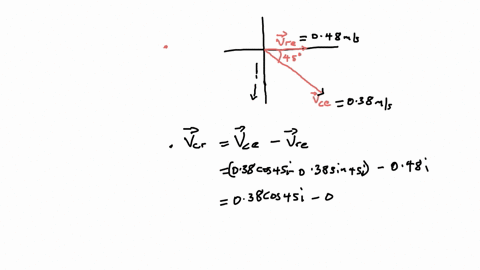 V⃗re = 0.48 m/s
45°
V⃗ce = 0.38 m/s
. V⃗cr = V⃗ce − V⃗re
= (0.38cos45i − 0.38sin45j) − 0.48i
= 0.38cos45i − 0